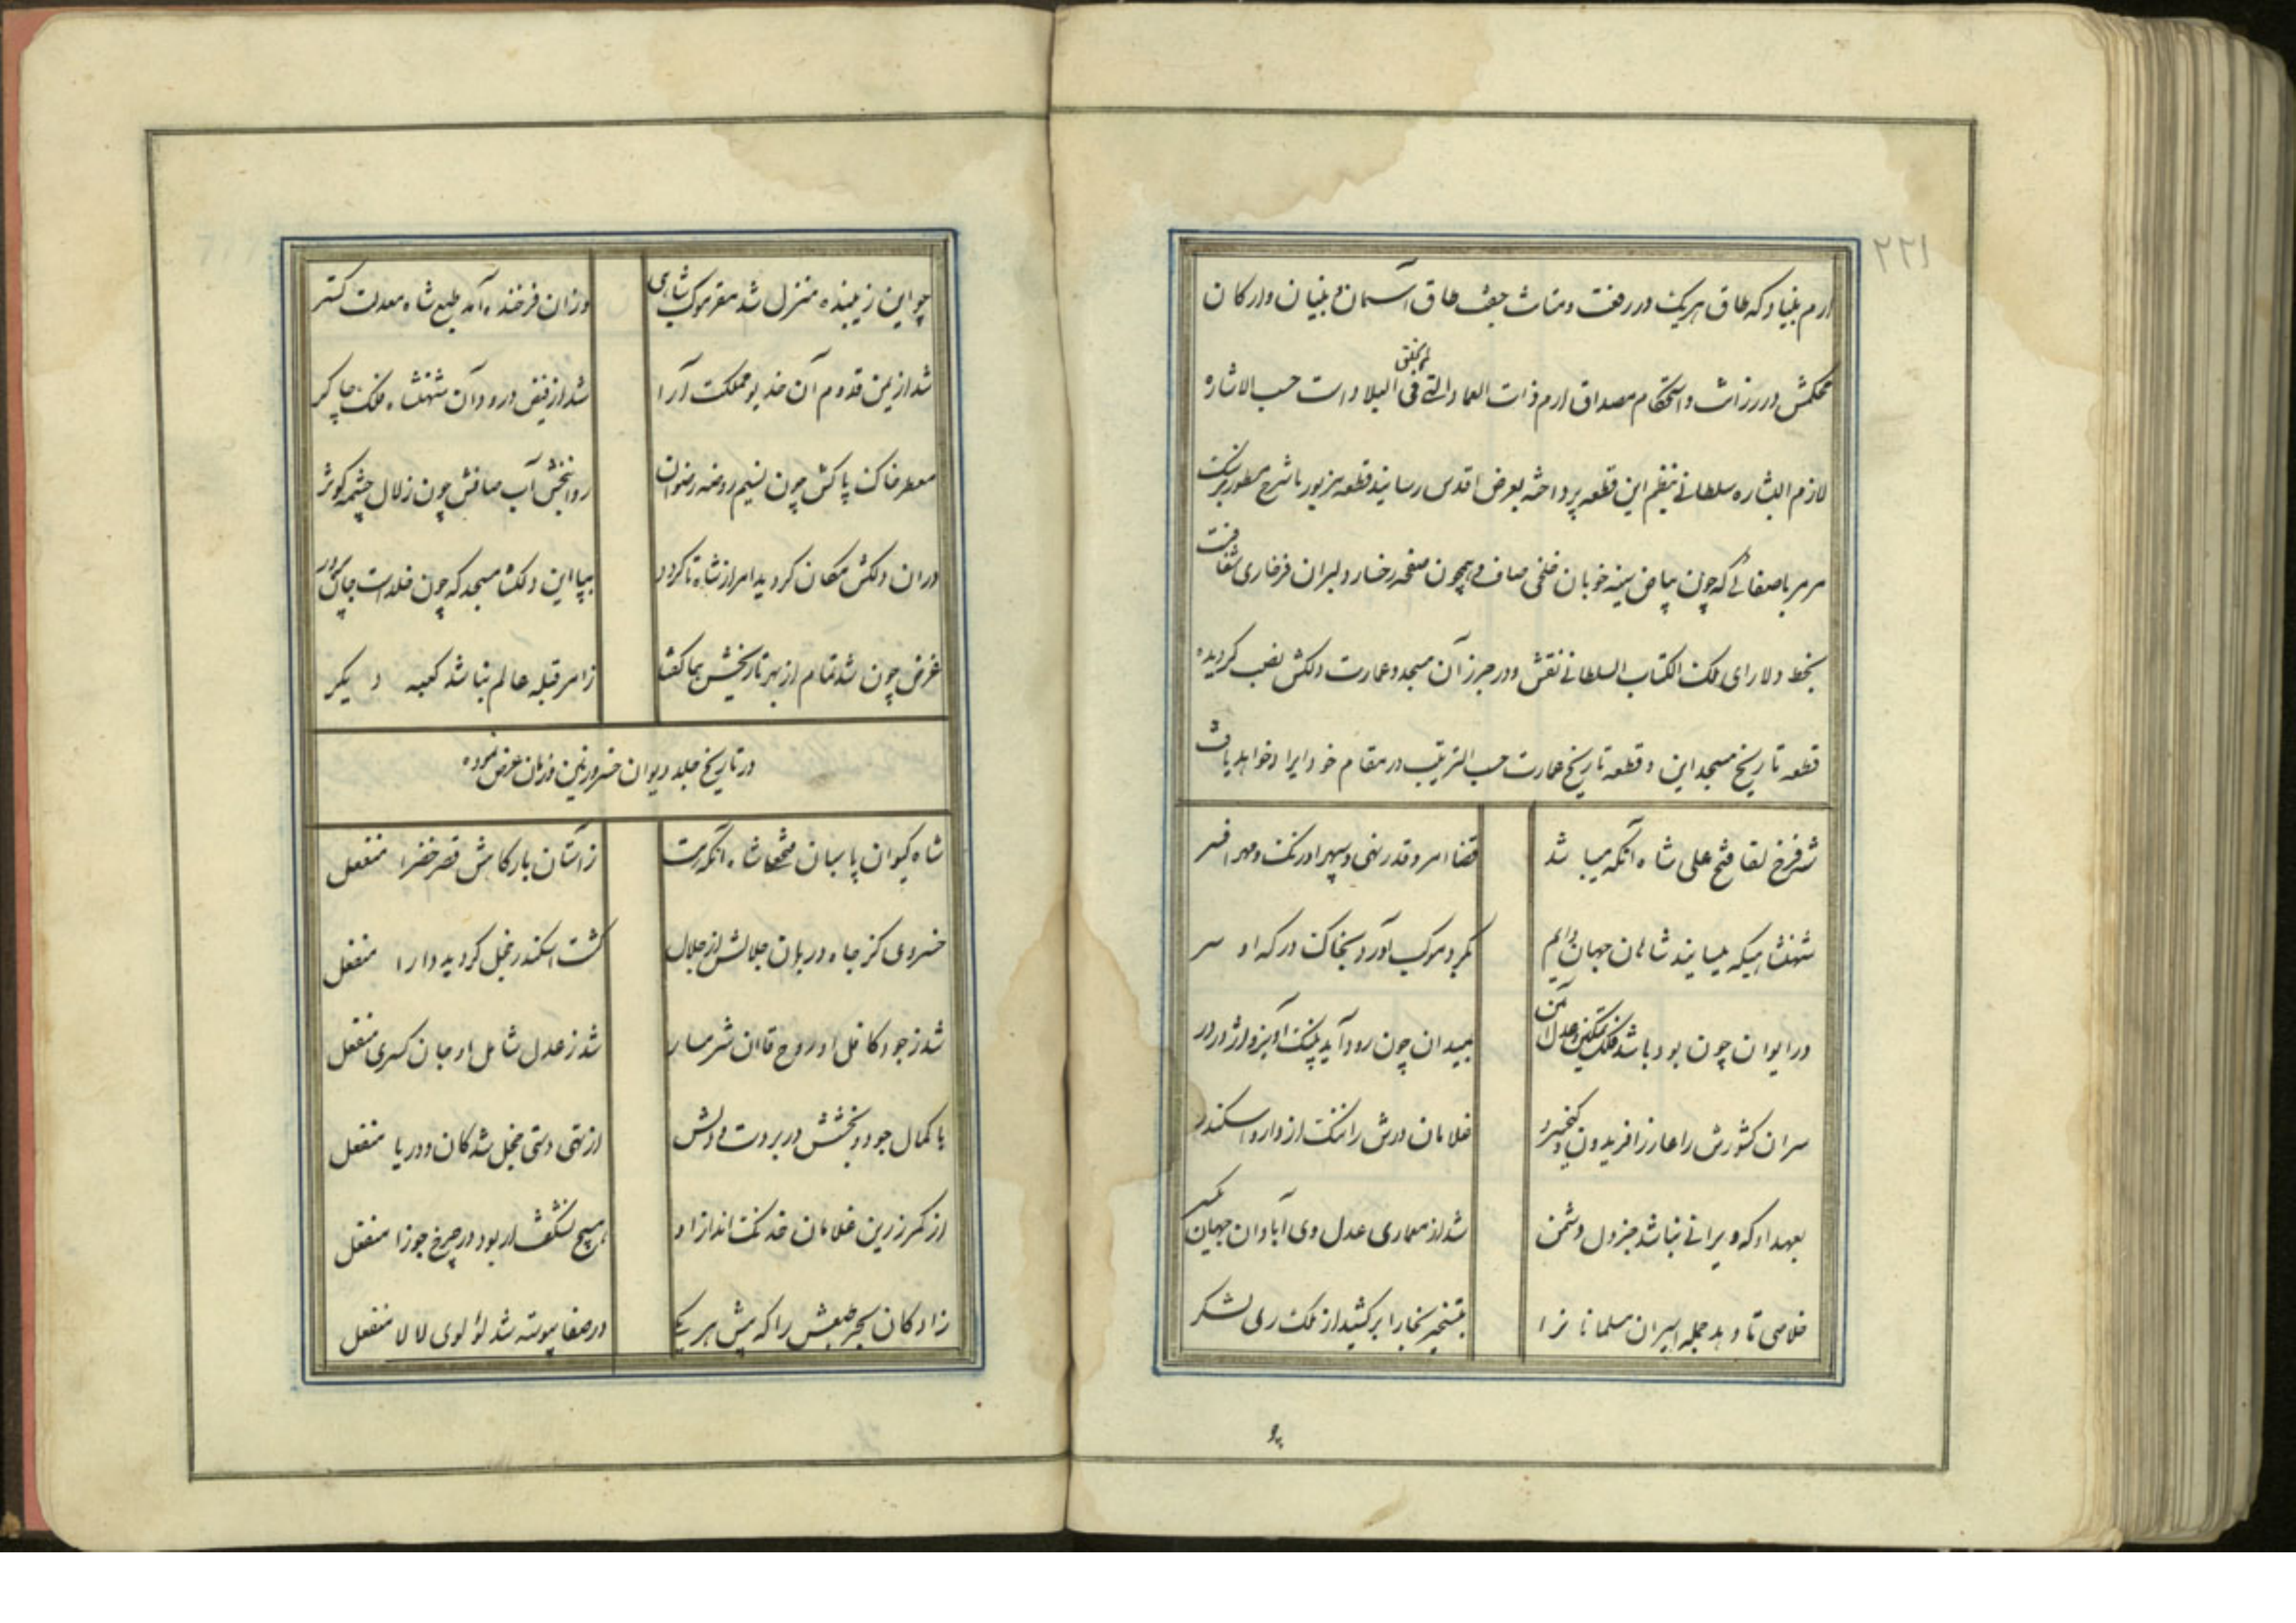 ۲۲۱
ارم بنیاد که طاق هریک در رفعت و متانت جفت طاق آسمان و بنیان و ارکان
محکمش در رزانت و استحکام مصداق ارم ذات العماد التی لم یخلق فی البلاد است حسب الاشاره
لازم البشاره سلطانی بنظم این قطعه پرداخته بعرض اقدس رسانید قطعه مزبور با شرح مسطور بر سنک
مرمر باصفائی که چون بیاض سینه خوبان خلخی صاف و همچون صفحه رخسار دلبران فرخاری شفافست
بخط دلارای ملک الکتاب السلطانی نقش و در جرز آن مسجد و عمارت دلکش نصب کردیده
قطعه تاریخ مسجد این و قطعه تاریخ عمارت حسب الترتیب در مقام خود ایراد خواهد یافت
شه فرخ لقا فتح علی شاه آنکه میباشد قضا امر و قدر نهی و سپهر اورنک و مهر افسر
شهنشاهیکه میسایند شاهان جهان دایم بکرد موکب آورد بخاک درکه او سر
در ایوان چون بود باشد فلک تمکین و عدل آئین بمیدان چون رود آید پلنک آویز و اژدر در
سران کشورش را عار از افریدون و کیخسرو غلامان درش را ننک از دارا و اسکندر
بعهد او که ویرانی نباشد جز دل دشمن شد از معماری عدل وی آبادان جهان یکسر
خلاصی تا دهد جمله اسیران مسلمانرا بتسخیر بخارا بر کشید از ملک ری لشکر
چو این زیبنده منزل شد مقر موکب شاهی وزان فرخنده آمد طبع شاه معدلت کستر
شد از یمن قدوم آن خدیو مملکت آرا شد از فیض ورود آن شهنشاه فلک چاکر
معطر خاک پاکش چون نسیم روضه رضوان روانبخش آب صافش چون زلال چشمه کوثر
در ان دلکش مکان کردید امر از شاه تا کردد بپا این دلکشا مسجد که چون خلدست جان پرور
غرض چون شد تمام از بهر تاریخش هما کفتا ز امر قبله عالم بنا شد کعبه دیکر
در تاریخ جلد دیوان خسرو زمین و زمان عرض نموده
شاه کیوان پاسبان فتحعلیشاه آنکه هست ز آستان بارکاهش قصر خضرا منفعل
خسروی کز جاه دربان جلالش از جلال کشت اسکندر خجل کردید دارا منفعل
شد ز جود کافل او روح قاآن شرمسار شد ز عدل شامل او جان کسری منفعل
با کمال جود و بخشش در بر دست و دلش از تهی دستی خجل شد کان و دریا منفعل
از کمر زرین غلامان خدنک انداز او هیچ نشکفت ار بود در چرخ جوزا منفعل
زادکان بحر طبعش را که پیش هر یکی در صفا پیوسته شد لؤلوی لالا منفعل